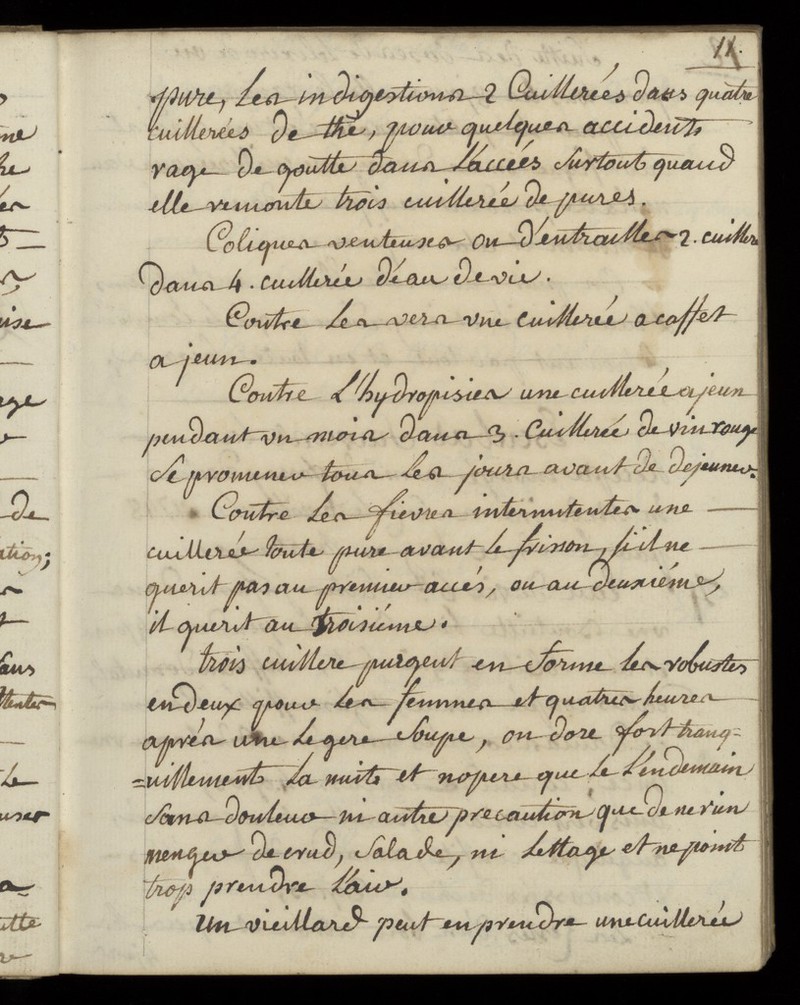 11.
pure, Les indigestions 2 Cuillerées dans quatre
cuillerées de thé, pour quelques accidents
rage de goutte dans L'accés Surtout quand
elle remonte trois cuillerée de pures.
Coliques venteuses ou d'entrailles 2. cuiller
Dans 4. cuillerée déau de vie.
Contre Les vers une cuillerée a caffet
a jeun.
Contre L'hydropisies une cuillerée a jeun
pendant un mois dans 3. Cuillerée de vin rouge
Se promener tous Les jours avant de dejeuner.
Contre Les fievres intermitentes une
cuillerée toute pure avant Le frisson, s'il ne
querit pas au premier accés, ou au deuxiéme,
il querit au troisiéme.
trois cuillere purgent en forme les robustes
en deux pour Les femmes et quatres heures
aprés une Legere Soupe, on dore fort tranq=
=uillements La nuits et nopere que Le L'endemain
Sans douleur ni autre precaution que de ne rien
menger de crud, Salade, ni Lettage et ne point
trop prendre L'air.
Un vieillard peut en prendre une cuillerée